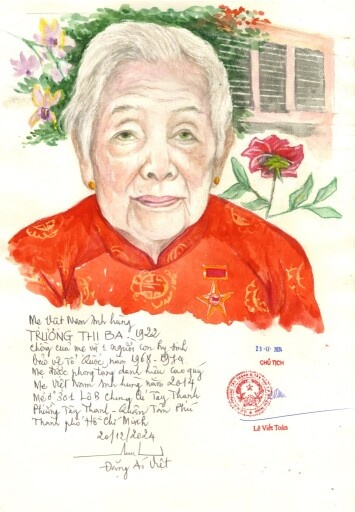 Mẹ Việt Nam Anh hùng
TRƯƠNG THỊ BA - 1922
Chồng của mẹ và 1 người con hy sinh
Bảo vệ Tổ Quốc năm 1968 - 1974
Mẹ được phong tặng danh hiệu cao quý
Mẹ Việt Nam Anh hùng năm 2014
Mẹ ở 301 Lô B Chung Cư Tây Thạnh
Phường Tây Thạnh - Quận Tân Phú
Thành phố Hồ Chí Minh
20/12/2024
Đặng Ái Việt
CHỦ TỊCH
Lê Viết Toàn